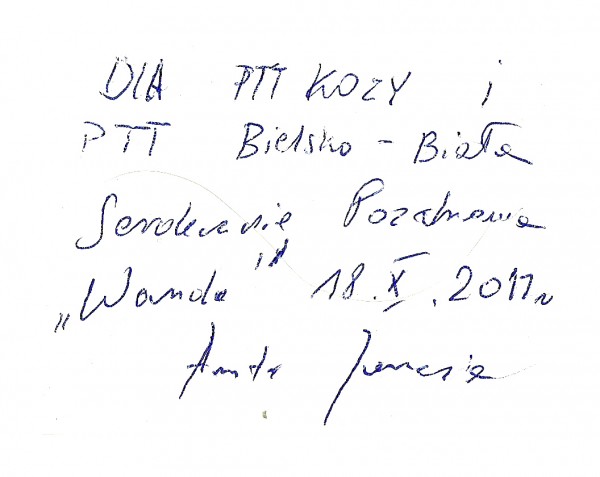 DLA PTT KOZY i
PTT Bielsko - Biała
Serdecznie Pozdrowia
„Wanda" 18.X.2011r